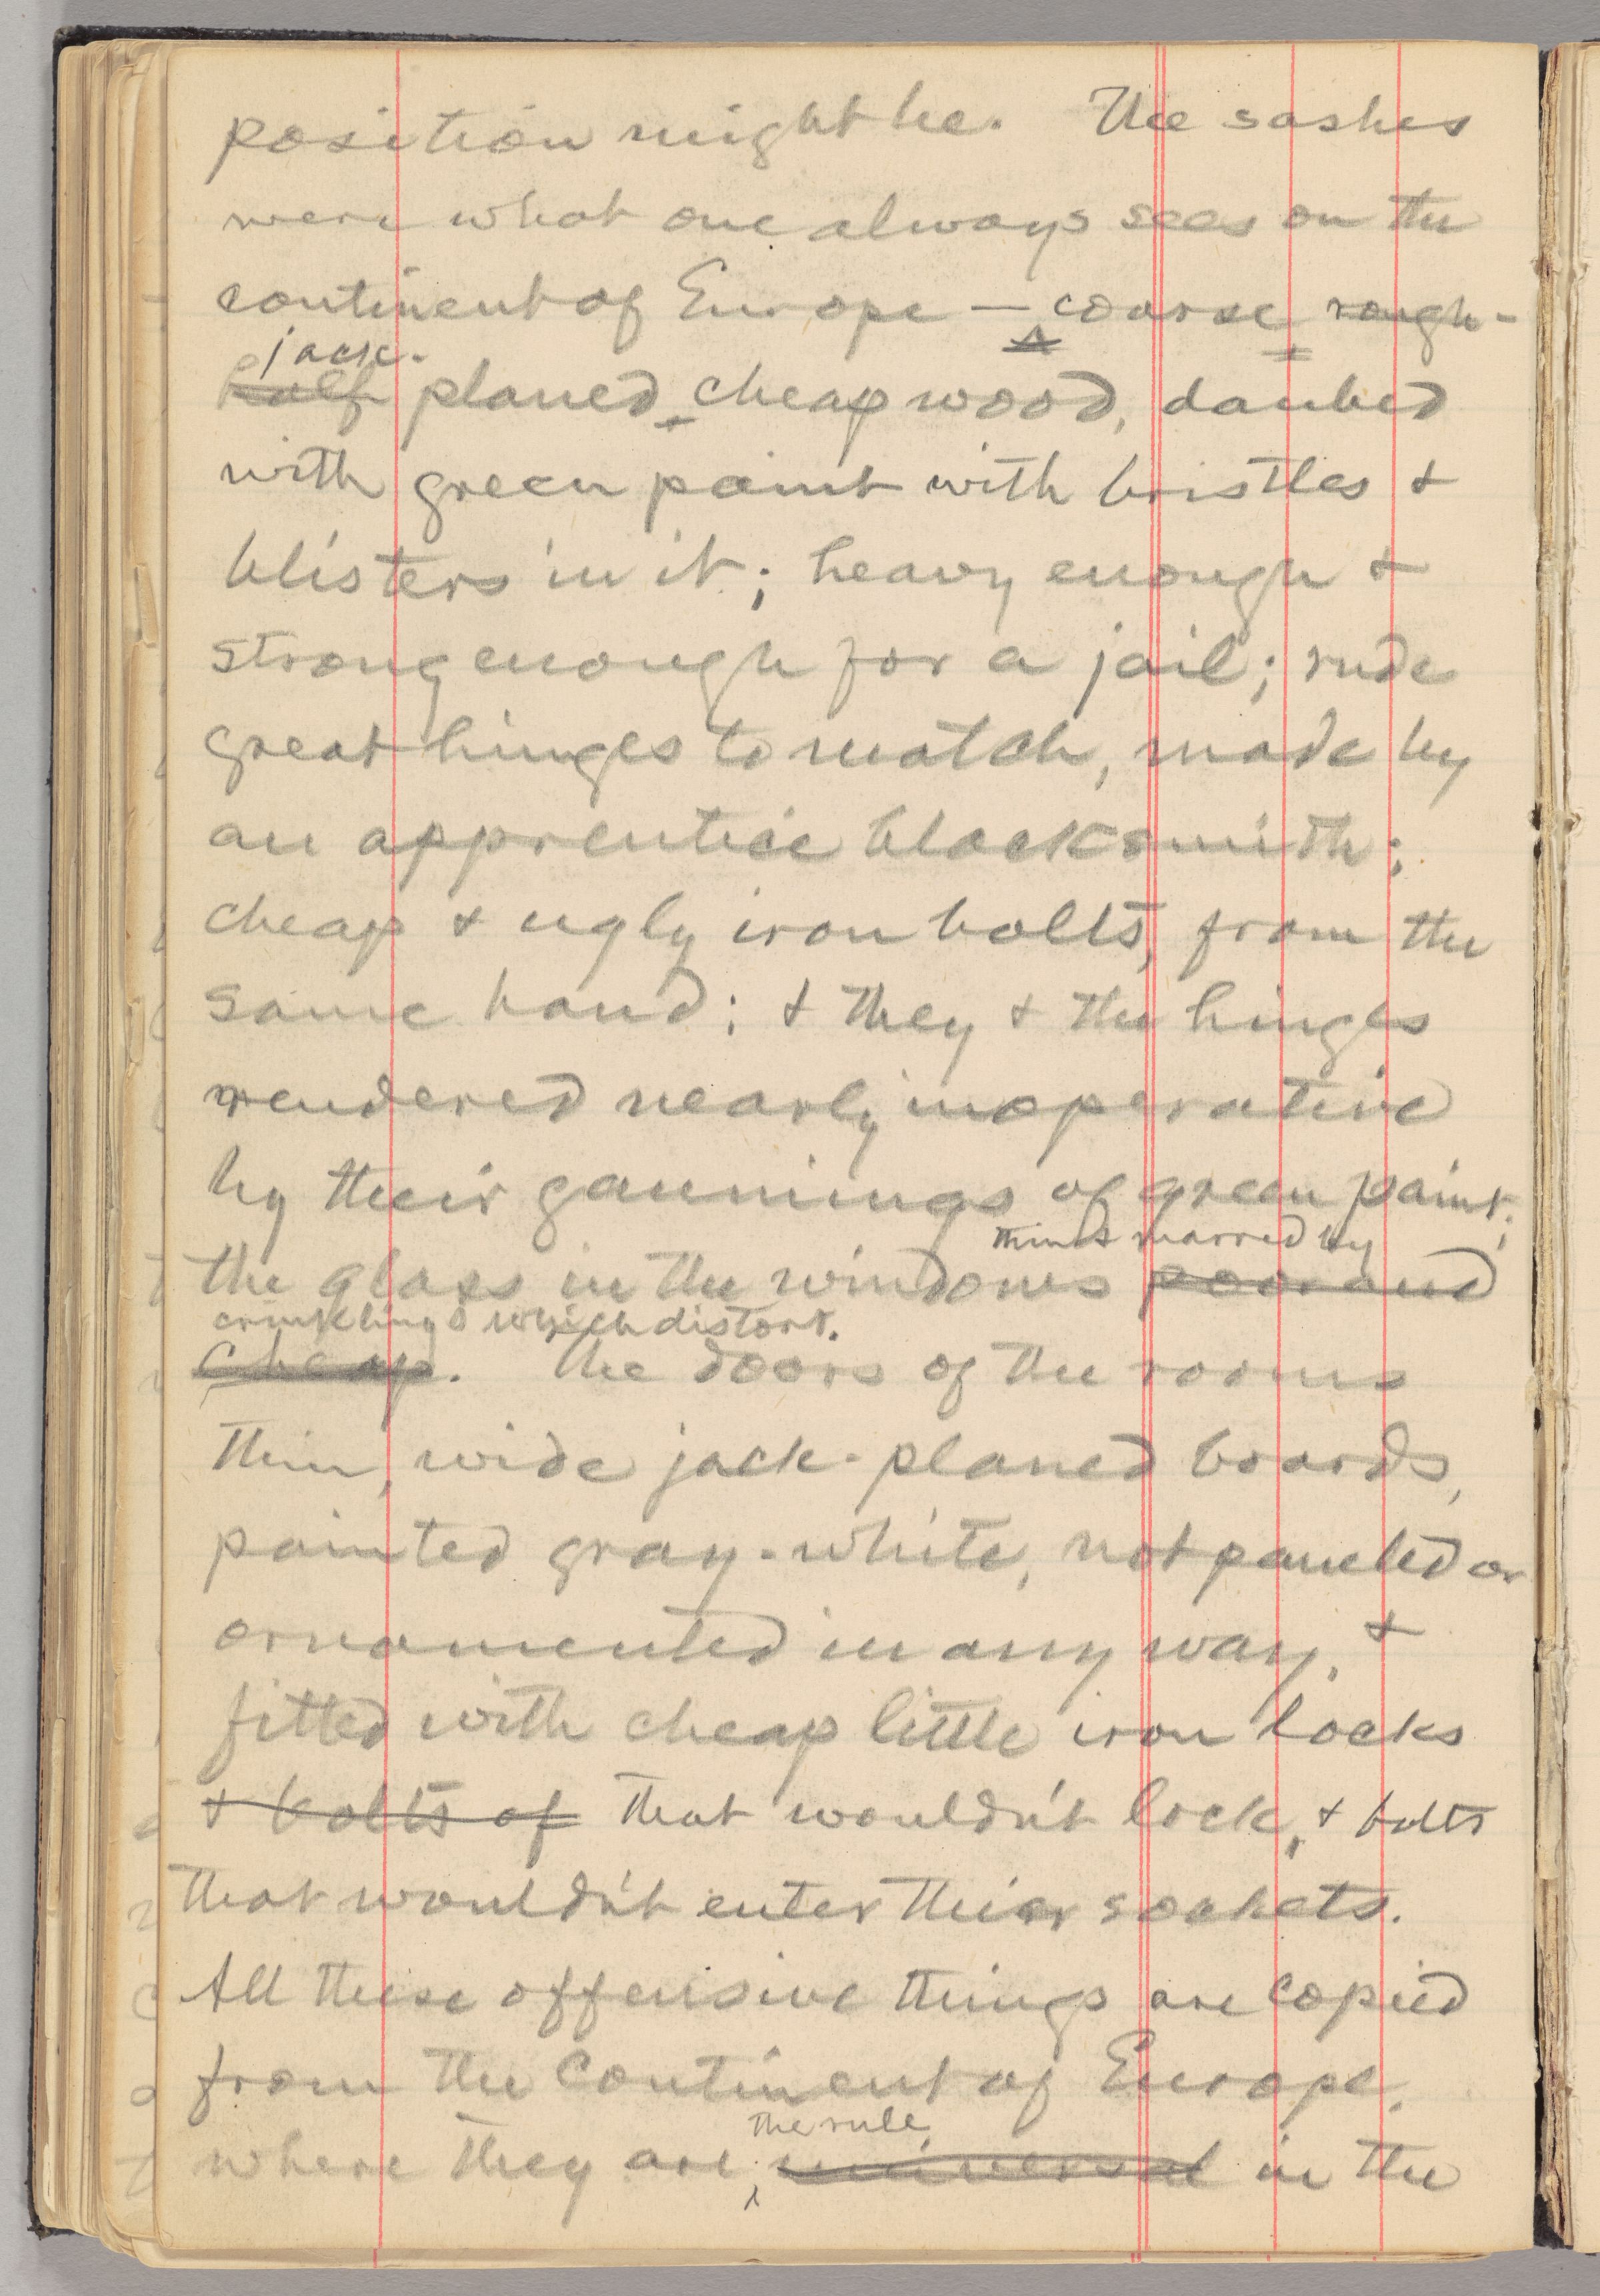 position might be. The sashes
were what one always sees on the
continent of Europe — coarse, rough-
jack-
half planed, cheap wood, daubed
with green paint with bristles &
blisters in it; heavy enough &
strong enough for a jail; rude
great hinges to match, made by
an apprentice blacksmith;
cheap & ugly iron bolts, from the
same hand; & they & the hinges
rendered nearly inoperative
by their gaumings of green paint;
thin & marred by
the glass in the windows poor and
crinklings which distort.
cheap. The doors of the rooms
thin, wide jack-planed boards,
painted gray-white, not paneled or
ornamented in any way, &
fitted with cheap little iron locks
& bolts of that wouldn't lock, & bolts
that wouldn't enter their sockets.
All these offensive things are copied
from the Continent of Europe,
the rule,
where they are universal in the